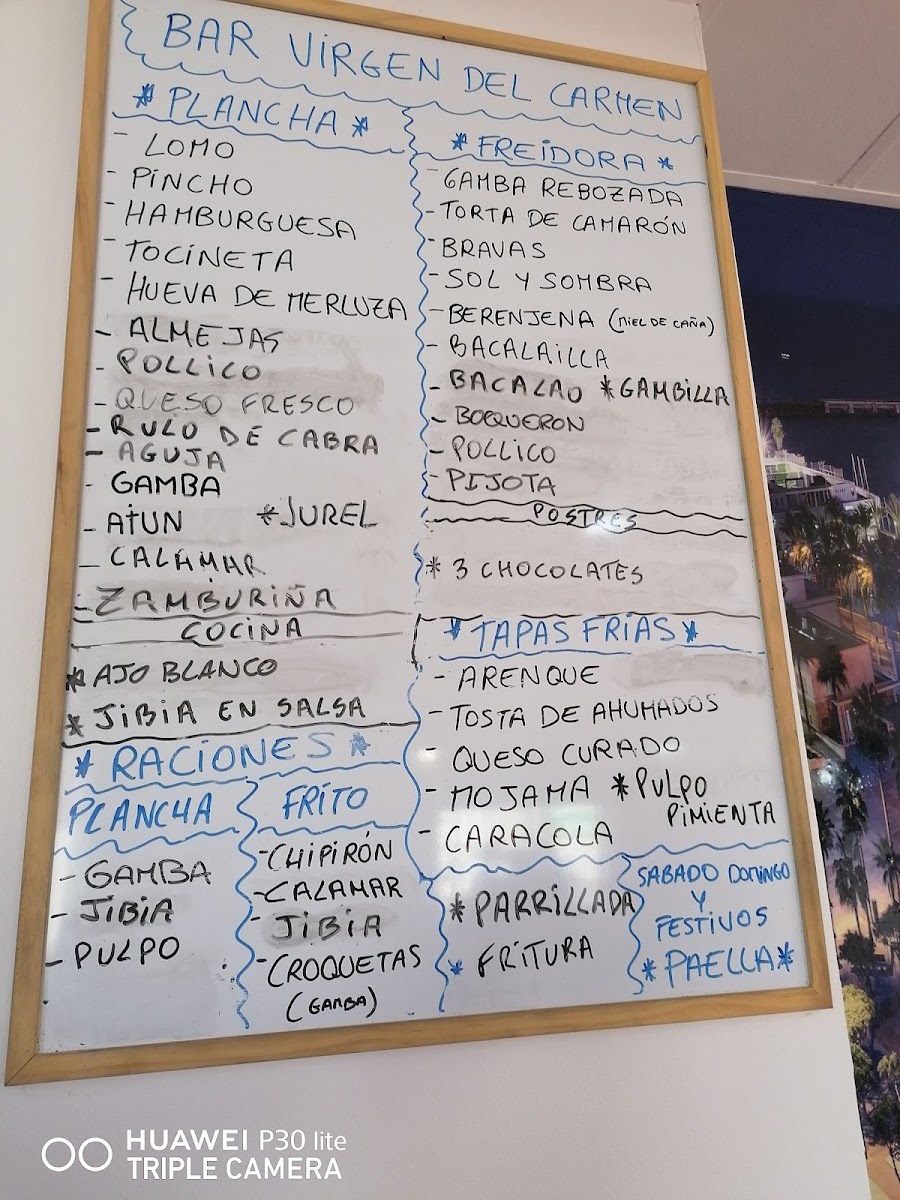 BAR VIRGEN DEL CARMEN
* PLANCHA *
- LOMO
- PINCHO
- HAMBURGUESA
- TOCINETA
- HUEVA DE MERLUZA
- ALMEJAS
- POLLICO
- QUESO FRESCO
- RULO DE CABRA
- AGUJA
- GAMBA
- ATUN *JUREL
- CALAMAR
- ZAMBURIÑA
COCINA
* AJO BLANCO
* JIBIA EN SALSA
* RACIONES *
PLANCHA
- GAMBA
- JIBIA
- PULPO
FRITO
- CHIPIRÓN
- CALAMAR
- JIBIA
- CROQUETAS
(GAMBA)
* FREIDORA *
- GAMBA REBOZADA
- TORTA DE CAMARÓN
- BRAVAS
- SOL Y SOMBRA
- BERENJENA (MIEL DE CAÑA)
- BACALAILLA
- BACALAO *GAMBILLA
- BOQUERON
- POLLICO
- PIJOTA
POSTRES
* 3 CHOCOLATES
* TAPAS FRIAS *
- ARENQUE
- TOSTA DE AHUMADOS
- QUESO CURADO
- MOJAMA *PULPO
PIMIENTA
- CARACOLA
* PARRILLADA
* FRITURA
SABADO DOMINGO
Y
FESTIVOS
* PAELLA *
HUAWEI P30 lite
TRIPLE CAMERA